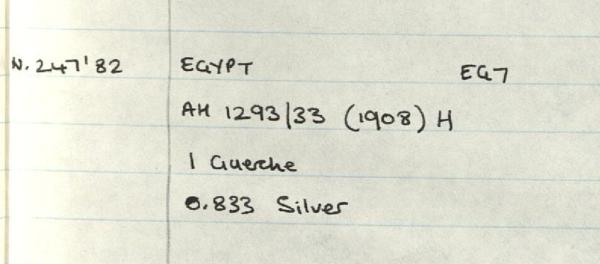 N.247'82 EGYPT EG7
AH 1293/33 (1908) H
1 Guerche
0.833 Silver